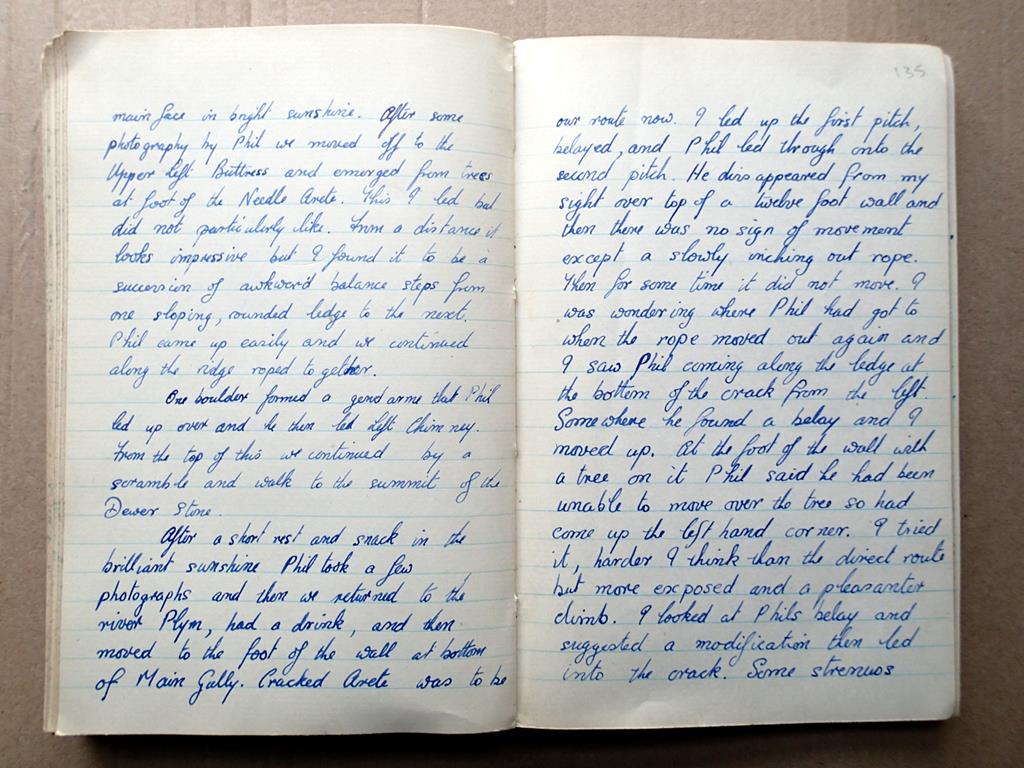 main face in bright sunshine. After some
photography by Phil we moved off to the
Upper Left Buttress and emerged from trees
at foot of the Needle Arete. This I led but
did not particularly like. From a distance it
looks impressive but I found it to be a
succession of awkward balance steps from
one sloping, rounded ledge to the next.
Phil came up easily and we continued
along the ridge roped together.
One boulder formed a gendarme that Phil
led up over and he then led Left Chimney.
From the top of this we continued by a
scramble and walk to the summit of the
Dewer Stone.
After a short rest and snack in the
brilliant sunshine Phil took a few
photographs and then we returned to the
river Plym, had a drink, and then
moved to the foot of the wall at bottom
of Main Gully. Cracked Arete was to be
135
our route now. I led up the first pitch,
belayed, and Phil led through onto the
second pitch. He dissappeared from my
sight over top of a twelve foot wall and
then there was no sign of movement
except a slowly inching out rope.
Then for some time it did not move. I
was wondering where Phil had got to
when the rope moved out again and
I saw Phil coming along the ledge at
the bottom of the crack from the left.
Somewhere he found a belay and I
moved up. At the foot of the wall with
a tree on it Phil said he had been
unable to move over the tree so had
come up the left hand corner. I tried
it, harder I think than the direct route
but more exposed and a pleasanter
climb. I looked at Phils belay and
suggested a modification then led
into the crack. Some strenuos